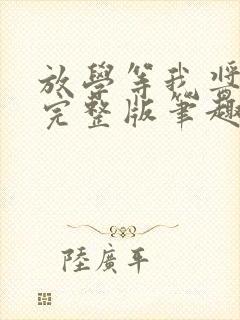 放學等我將
完整版筆趣
陸廣平